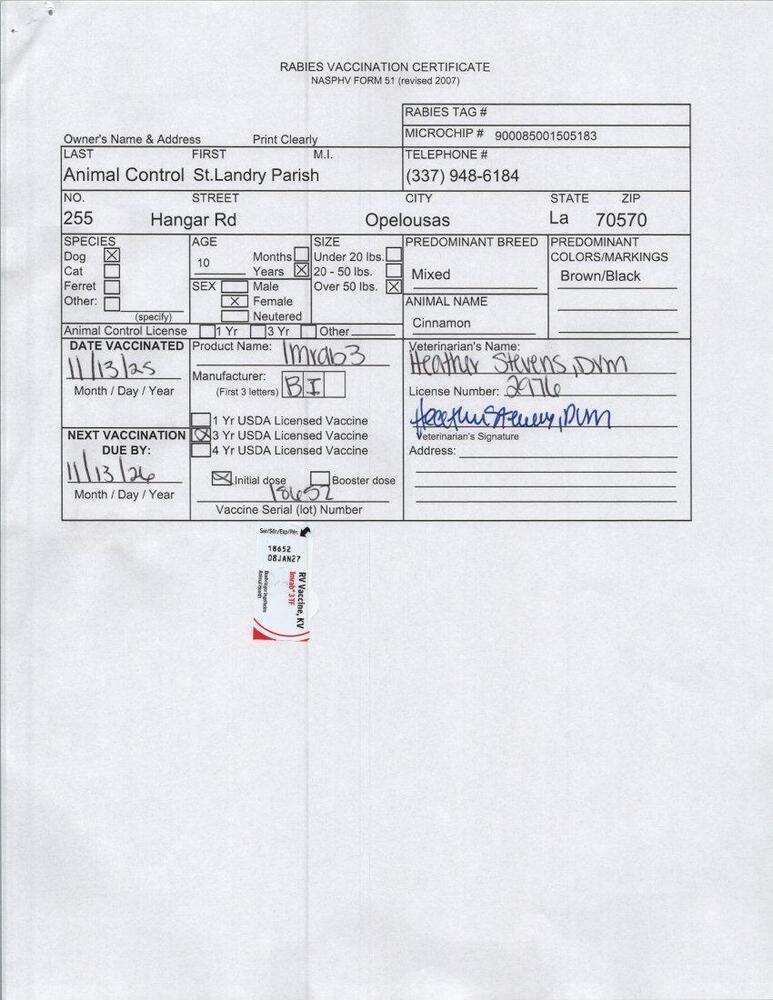 RABIES VACCINATION CERTIFICATE
NASPHV FORM 51 (revised 2007)
RABIES TAG #
Owner's Name & Address Print Clearly
MICROCHIP # 900085001505183
LAST FIRST M.I. TELEPHONE #
Animal Control St.Landry Parish (337) 948-6184
NO. STREET CITY STATE ZIP
255 Hangar Rd Opelousas La 70570
SPECIES AGE SIZE PREDOMINANT BREED PREDOMINANT
Dog X 10 Months Under 20 lbs. COLORS/MARKINGS
Cat Years X 20 - 50 lbs. Mixed Brown/Black
Ferret SEX Male Over 50 lbs. X
Other: X Female ANIMAL NAME
(specify) Neutered Cinnamon
Animal Control License 1 Yr 3 Yr Other
DATE VACCINATED Product Name: Imrab3 Veterinarian's Name:
11/13/25 Heather Stevens, DVM
Month / Day / Year Manufacturer: BI License Number: 2976
(First 3 letters)
1 Yr USDA Licensed Vaccine Heather Stevens, DVM
NEXT VACCINATION X 3 Yr USDA Licensed Vaccine Veterinarian's Signature
DUE BY: 4 Yr USDA Licensed Vaccine Address:
11/13/26 X Initial dose Booster dose
Month / Day / Year 18652
Vaccine Serial (lot) Number
Ser/Sér/Exp/Pér:
18652
08JAN27
RV Vaccine, KV
Imrab® 3 TF
Boehringer Ingelheim
Animal Health